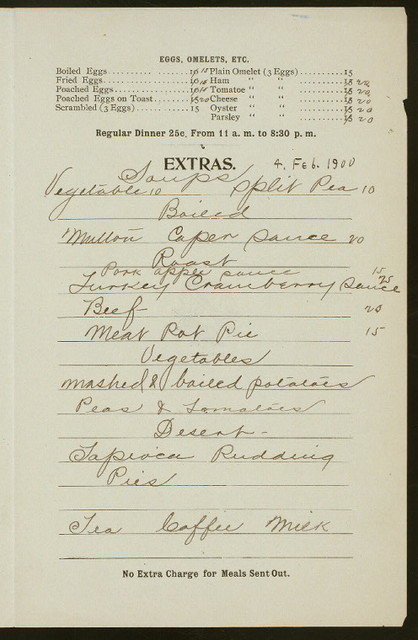 EGGS, OMELETS, ETC.
Boiled Eggs 10 15 Plain Omelet (3 Eggs) 15
Fried Eggs 10 15 Ham " " 15 20
Poached Eggs 10 15 Tomatoe " " 15 20
Poached Eggs on Toast 15 20 Cheese " " 15 20
Scrambled (3 Eggs) 15 Oyster " " 15 20
Parsley " " 15 20
Regular Dinner 25c. From 11 a. m. to 8:30 p. m.
EXTRAS. 4, Feb. 1900
Soups
Vegetable 10 Split Pea 10
Boiled
Mutton Caper Sauce 20
Roast
Pork apper sauce 15
Turkey Cramberry Sauce 25
Beef 20
Meat Pot Pie 15
Vegetables
mashed & boiled potatoes
Peas & Tomatoes
Desert -
Tapioca Pudding
Pies
Tea Coffee Milk
No Extra Charge for Meals Sent Out.